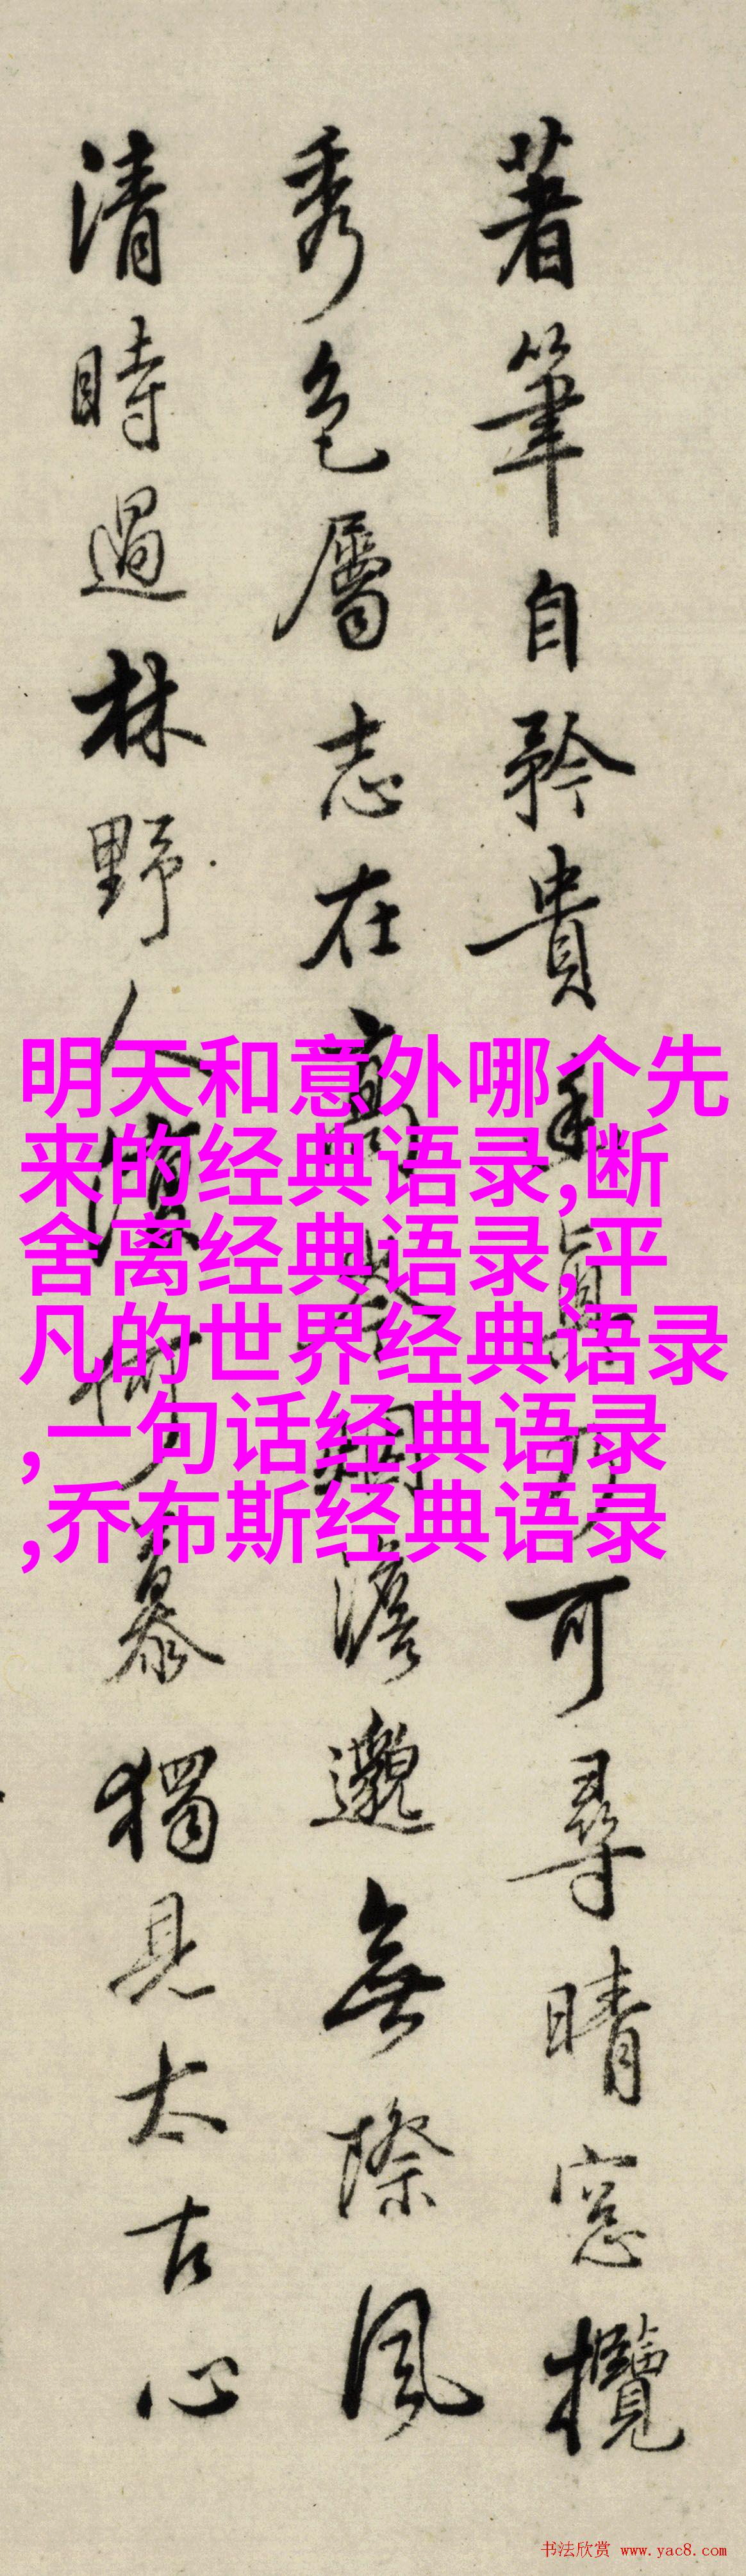 著筆自矜貴 真 可尋晴窓攬
秀色屬志在高 澹邈無際風
清時過林野人 暮獨見太古心
明天和意外哪个先
来的经典语录,断
舍离经典语录,平
凡的世界经典语录
,一句话经典语录
,乔布斯经典语录
书法欣赏 www.yac8.com